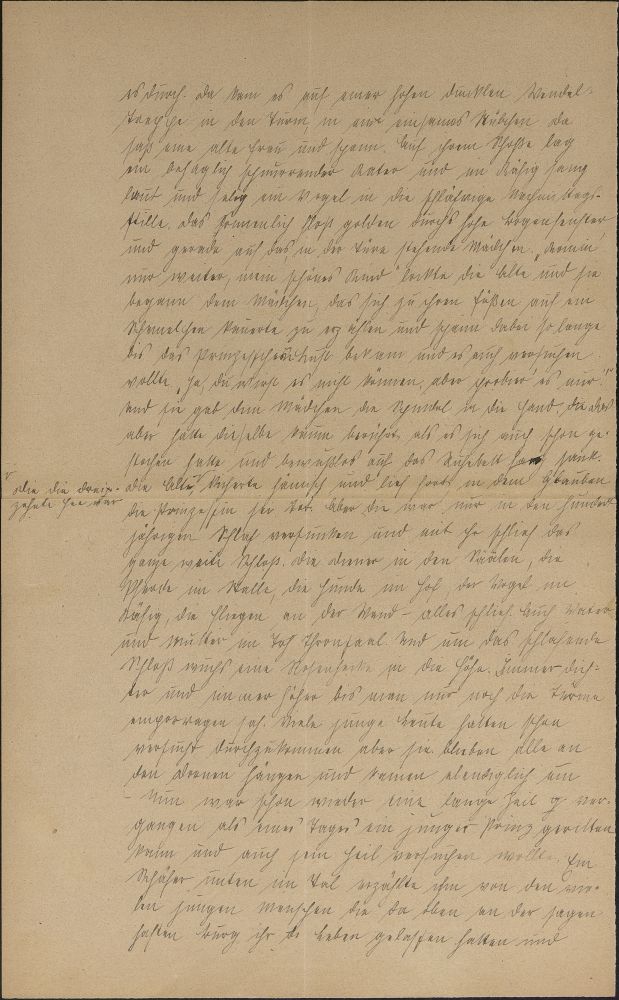 es durch. Da kam es auf einer hohen dunklen Wendel-
treppe in den Turm in ein einsames Stübchen da
saß eine alte Frau und spann. Auf ihrem Schoße lag
ein behaglich schnurrender Kater und im Käfig sang
laut und selig ein Vogel in die schläfrige Nachmittags-
stille. Das Sonnenlich floß golden durchs hohe Bogenfenster
und gerade auf das in der Türe stehende Mädchen. „Komm
nur weiter, mein schönes Kind" lockte die Alte und sie
begann dem Mädchen, das sich zu ihren Füßen auf ein
Schemelchen kauerte zu erzählen und spann dabei so lange
bis das Prinzeßchen Lust bekam und es auch versuchen
wollte. „Ja, du wirst es nicht können, aber probier' es nur!"
Und sie gab dem Mädchen die Spindel in die Hand, die das
aber hatte dieselbe kaum berührt, als es sich auch schon ge-
stochen hatte und bewußtlos auf das Ruhebett sank.
die die drei-
zehnte Fee war
Die Alte, kicherte hämisch und lief fort in dem Glauben
die Prinzessin sei tot. Aber die war nur in den hundert
jährigen Schlaf versunken und mit ihr schlief das
ganze weite Schloß. Die Diener in den Sälen, die
Pferde im Stalle, die Hunde im Hof, der Vogel im
Käfig, die Fliegen an der Wand – alles schlief. Auch Vater
und Mutter im Thronsaal. Und um das schlafende
Schloß wuchs eine Rosenhecke in die Höhe. Immer dich-
ter und immer höher bis man nur noch die Türme
emporragen sah. Viele junge Leute hatten schon
versucht durchzukommen aber sie blieben alle an
den Dornen hängen und kamen elendiglich um
– Nun war schon wieder eine lange Zeit ver-
gangen als eines Tages ein junger Prinz geritten
kam und auch sein Heil versuchen wollte. Ein
Schäfer unten im Tal erzählte ihm von den vie-
len jungen Menschen die da oben an der sagen
haften Burg ihr Leben gelassen hatten und